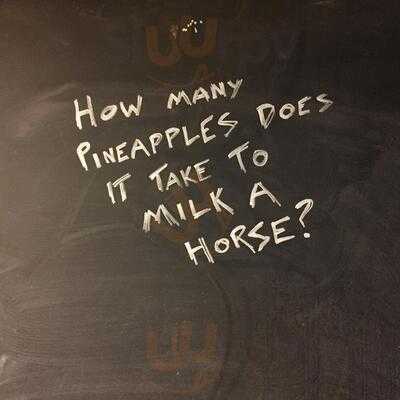 HOW MANY
PINEAPPLES DOES
IT TAKE TO
MILK A
HORSE?